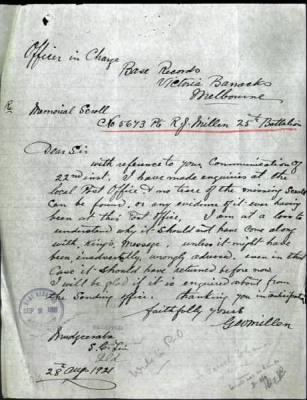 Officer in Charge
Base Records
Victoria Barracks
Melbourne
Re
Memorial Scroll
No 5673 Pte R. J. Millen 25th Battalion
Dear Sir
with reference to your Communication of
22nd inst. I have made enquiries at the
local Post Office & no trace of the missing Scroll
can be found, or any evidence of it ever having
been at this Post Office, I am at a loss to
understand why it should not have come along
with, King's Message, unless it might have
been, inadvertently, wrongly adressed, even in that
Case it should have returned before now
I will be glad if it is enquired about from
the sending office. thanking you in anticipation
faithfully yours
Geo Millen
Mudgeeraba
S. C. Line
Qld
28th Aug 1921